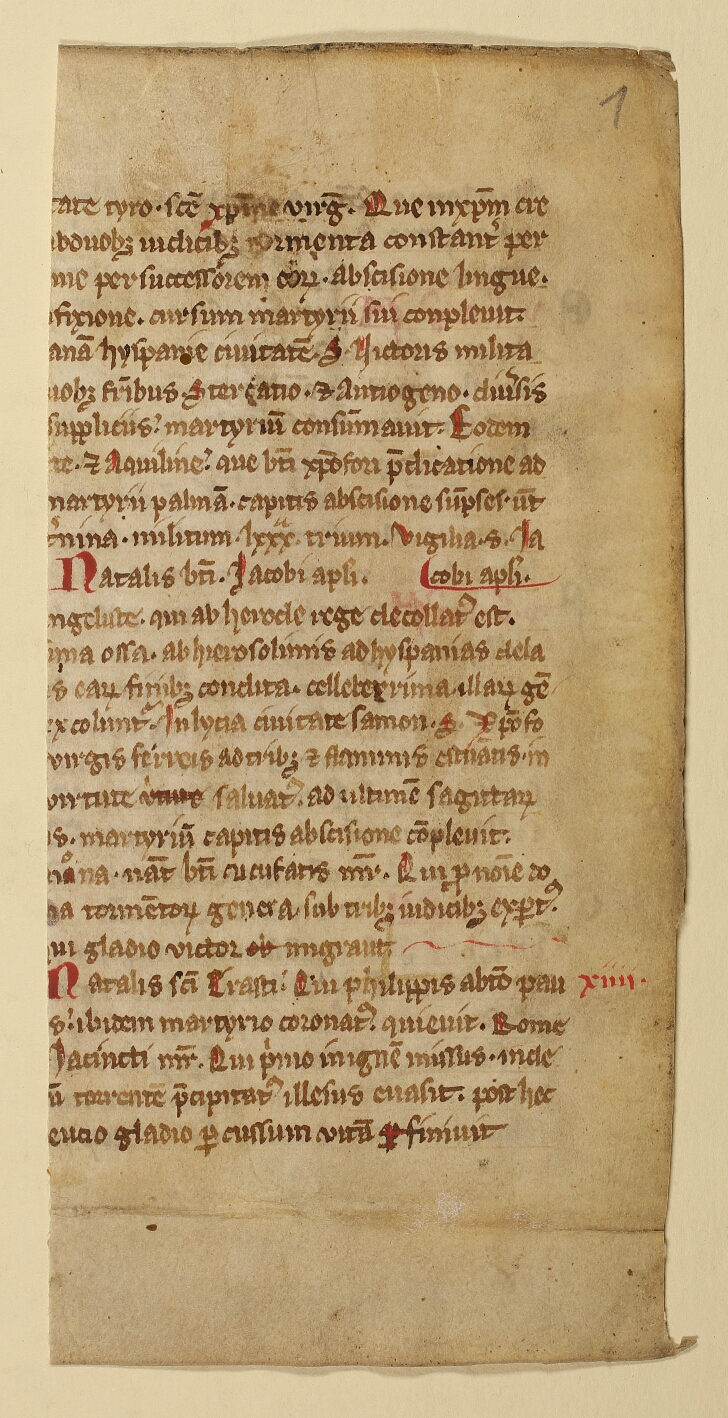 1
tate tyro. scē xp̄ine virḡ. Que in xp̄m cre
bduobꝫ iudicibꝫ tormenta constant᷑ per
me per successorem eoꝝ. abscisione lingue.
fixione. cursum martyrii sui conpleuit.
anā hyspanie ciuitatē. S. Victoris milita
uobꝫ fr̄ibus. Stercatio. ⁊ Antiogeno. diu͛sis
suppliciis? martyriū consūmauit. Eodem
te. ⁊ Aquiline? que bt̄i xp̄ofori p̄dicatione ad
martyrii palmā. capitis abscisione sūpses. ūt
nina. militum. lxxx. trium. Vigilia. s. Ja
Natalis bt̄i. Jacobi apłi. cobi apłi.
ngeliste. qui ab herode rege decollat᷒ est.
ima ossa. ab hierosolimis ad hyspanias dela
s eaꝝ finibꝫ condita. celleberrima illaꝝ gē
excolunt᷑. In lycia ciuitate samon. s. Xp̄ofo
virgis ferreis adtribꝫ ⁊ flammis estuātis. in
virtute saluat᷒. ad ultimē sagittaꝝ
s. martyriū capitis abscisione cōpleuit.
na. nāt bt̄i cucufatis mr̄. Qui p̄ noīe do
na tormētoꝝ genera. sub tribꝫ iudicibꝫ expert᷒.
ui gladio victor migrauit
Natalis sc̄i Erasti? Qui philippis abtō pau xiiii.
s? ibidem martyrio coronat᷒. quieuit. Rome
Jacincti mr̄. Qui p̄mo in ignē missus. inde
ū torrentē p̄cipitat᷒ illesus euasit. post hec
eucio gladio ꝑcussum vitā finiuit